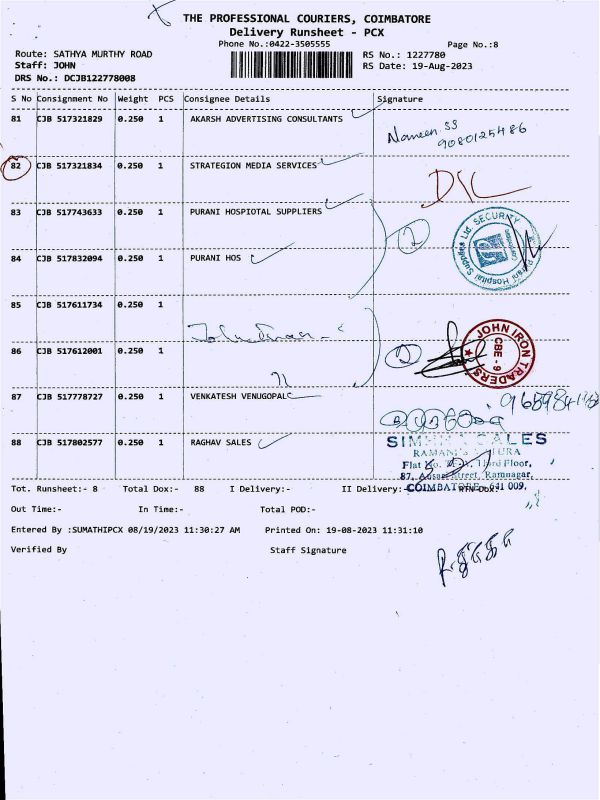 THE PROFESSIONAL COURIERS, COIMBATORE
Delivery Runsheet - PCX
Phone No.:0422-3505555
Page No.:8
Route: SATHYA MURTHY ROAD
RS No.: 1227780
Staff: JOHN
RS Date: 19-Aug-2023
DRS No.: DCJB122778008
S No Consignment No Weight PCS Consignee Details Signature
81 CJB 517321829 0.250 1 AKARSH ADVERTISING CONSULTANTS
Naveen SS
9080125486
82 CJB 517321834 0.250 1 STRATEGION MEDIA SERVICES
D\L
83 CJB 517743633 0.250 1 PURANI HOSPIOTAL SUPPLIERS
2
Purani Hospital Supplies Ltd. SECURITY
84 CJB 517832094 0.250 1 PURANI HOS
85 CJB 517611734 0.250 1
86 CJB 517612001 0.250 1
2
JOHN IRON TRADERS
CBE - 9
87 CJB 517778727 0.250 1 VENKATESH VENUGOPAL
88 CJB 517802577 0.250 1 RAGHAV SALES
SALES
Flat No. Third Floor,
87, Street, Ramnagar,
COIMBATORE - 641 009.
Tot. Runsheet:- 8 Total Dox:- 88 I Delivery:- II Delivery:-
Out Time:- In Time:- Total POD:-
Entered By :SUMATHIPCX 08/19/2023 11:30:27 AM Printed On: 19-08-2023 11:31:10
Verified By Staff Signature